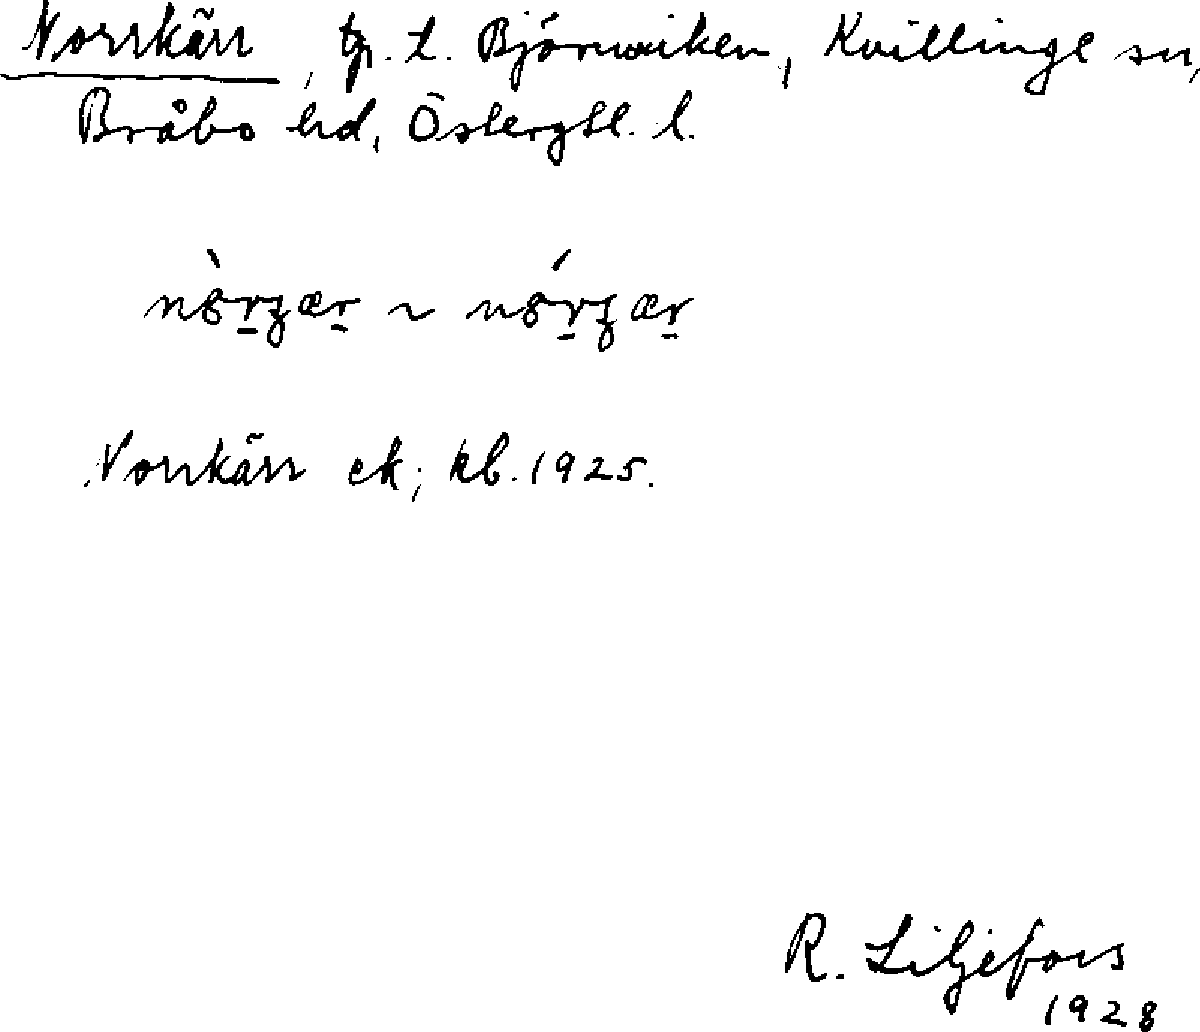 Norrkärr, tp. t. Björnviken, Kvillinge sn,
Bråbo hd, Östergtl. l.
Norrkärr ek; kb. 1925.
R. Liljefors
1928